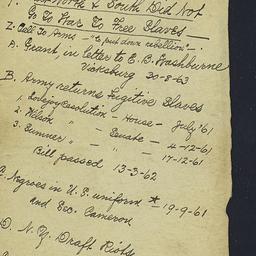 1. North & South Did Not
Go To War To Free Slaves
2. Call To Arms – "to put down rebellion" –
A. Grant in letter to E. B. Washburne
Vicksburg 30-8-63
B. Army returns Fugitive Slaves
1. Lovejoy Resolution – House – July '61
2. Wilson " – Senate – 4-12-61
3. Sumner " – " – 17-12-61
Bill passed 13-3-62
C. Negroes in U.S. uniform * 19-9-61
and Sec. Cameron
D. N.Y. Draft Riots